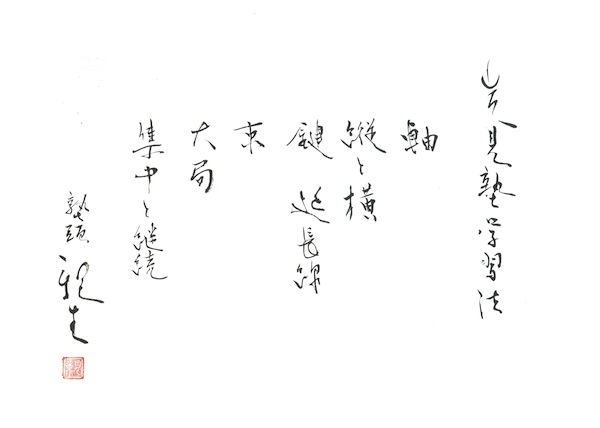 岩見塾学習法
軸
縦と横
鍵 延長線
束
大局
集中と継続
塾頭